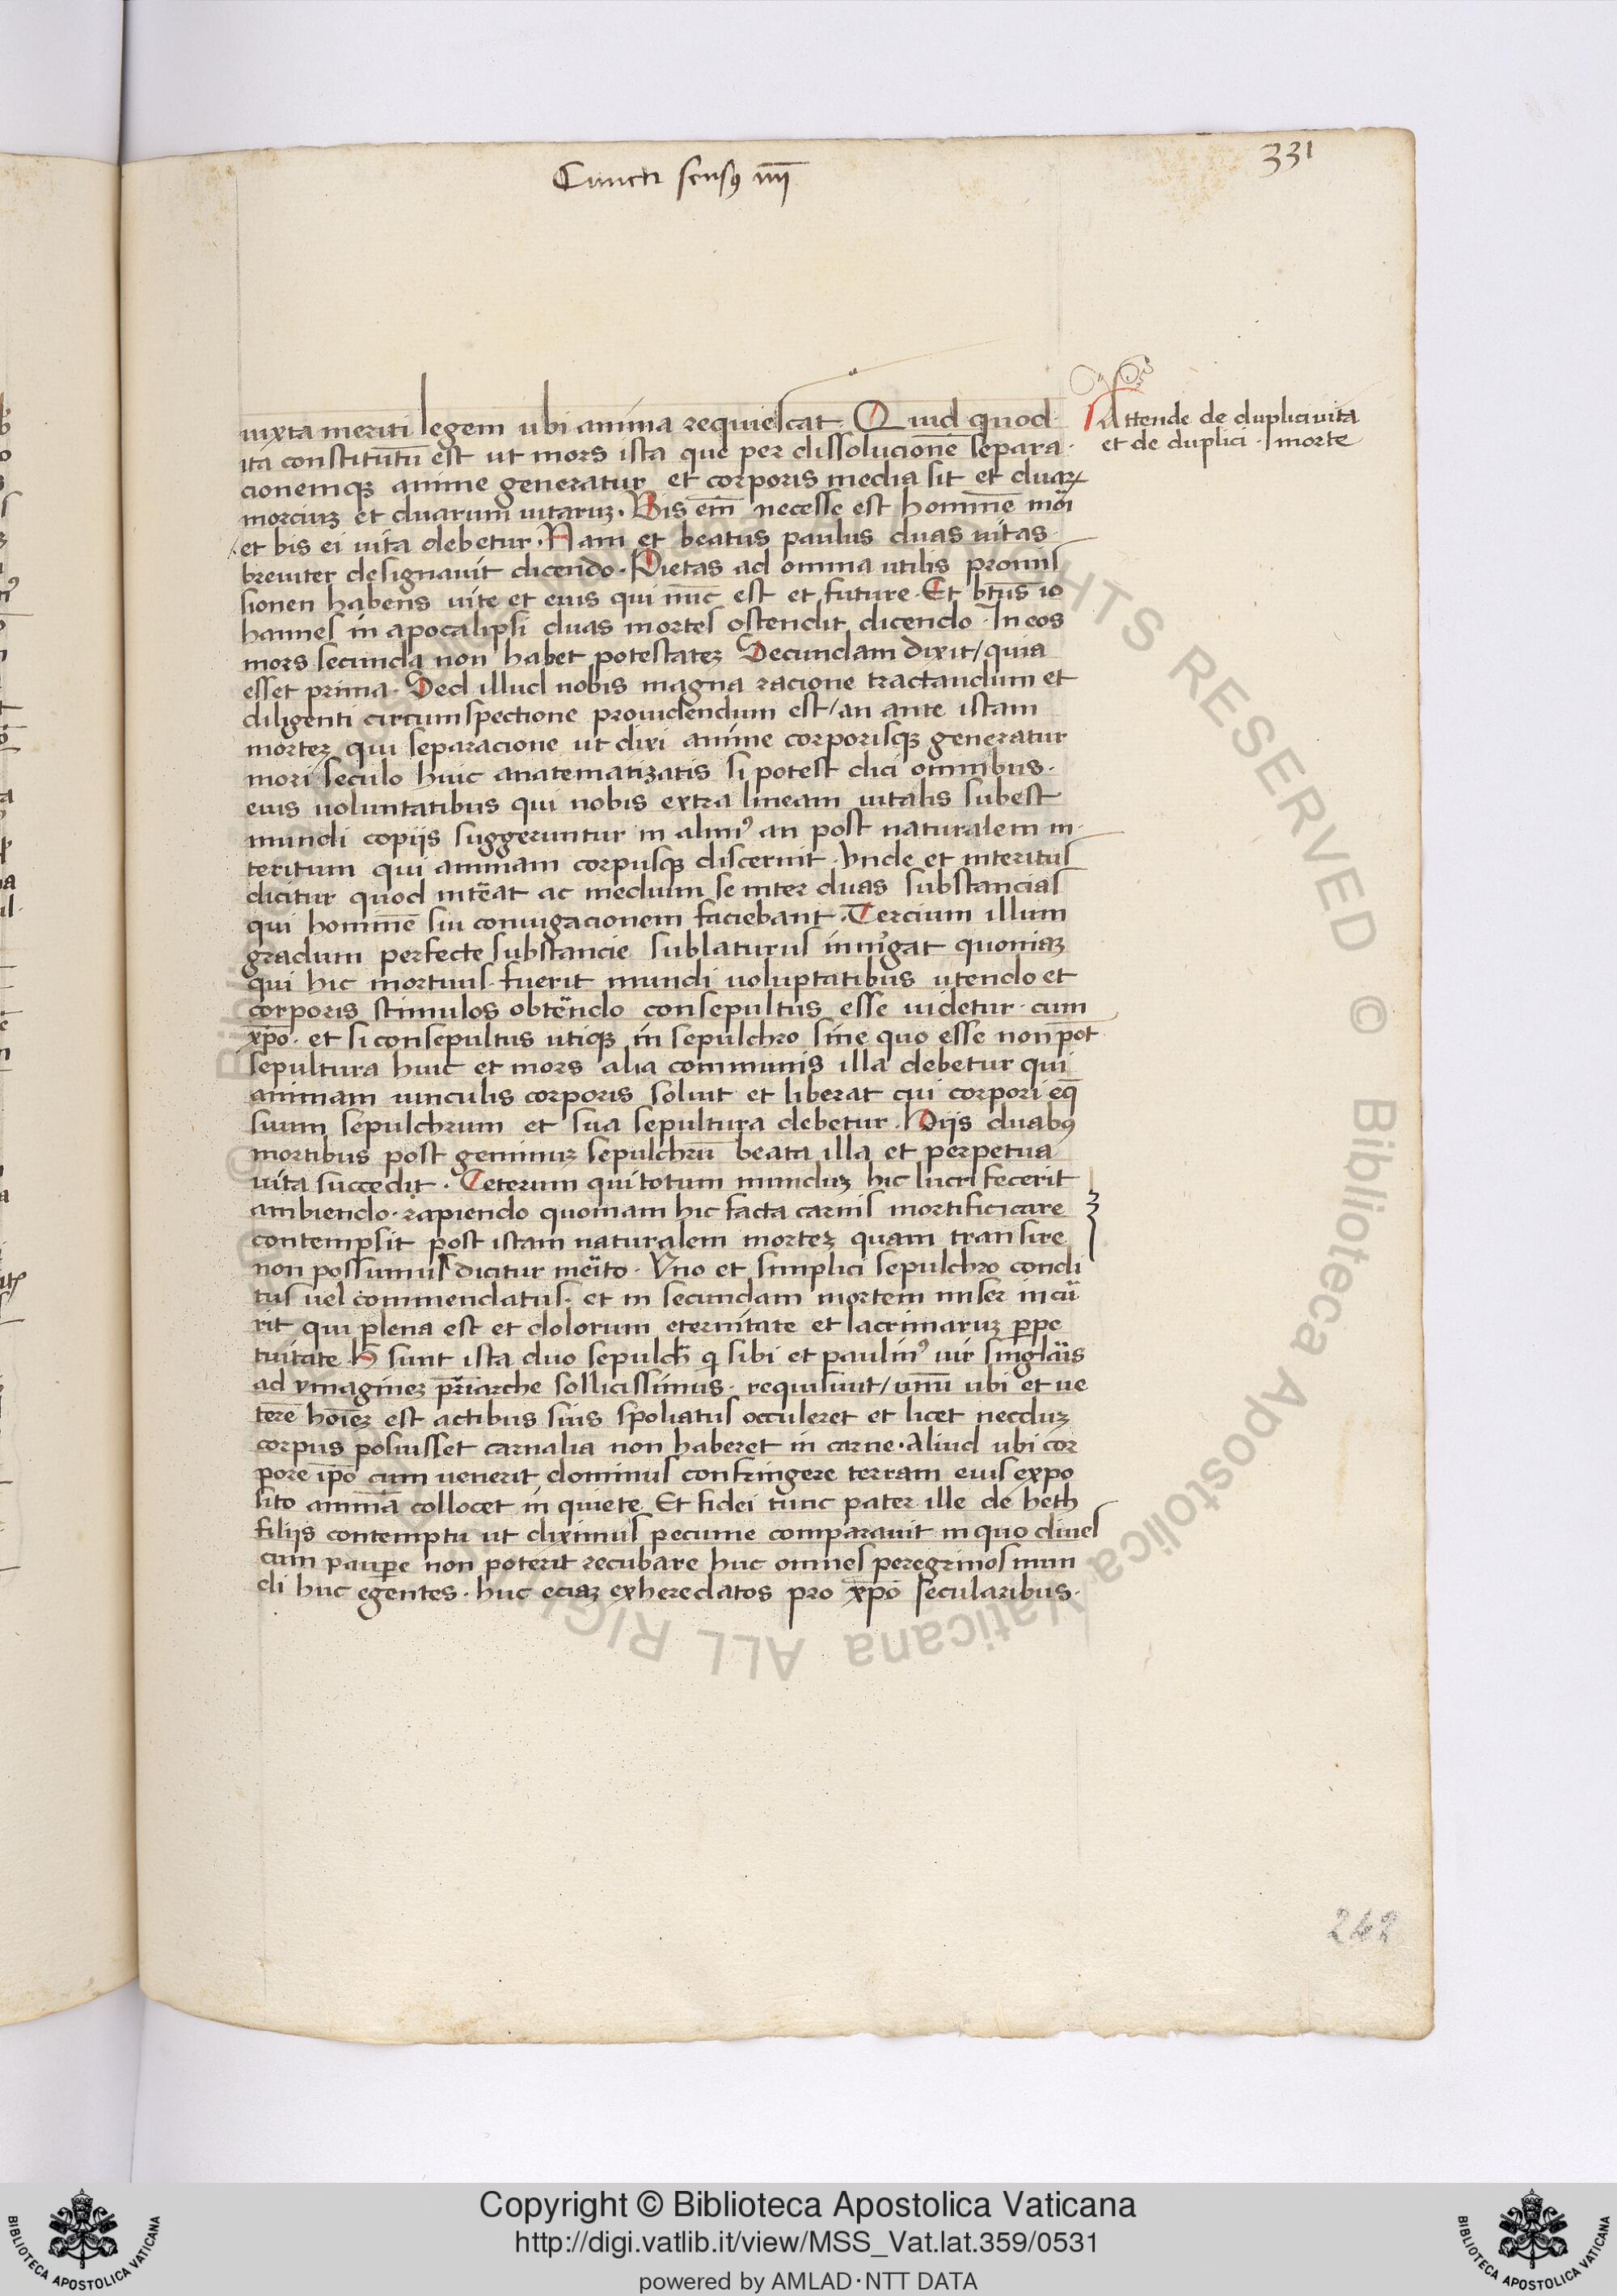 331
Cuncti sensꝰ iiij
iuxta meriti legem ubi anima requiescat Quid quod
ita constitutū est ut mors ista que per dissolucionē separa
cionemqꝫ anime generatur et corporis media sit et duaꝝ
morciuꝫ et duarum uitaruꝫ. Bis em̄ necesse est hominē mori
et bis ei uita debetur. Nam et beatus paulus duas uitas
breuiter designauit dicendo. Pietas ad omnia utilis promis
sionen habens uite et eius qui nūc est et future. Et btūs io
hannes in apocalipsi duas mortes ostendit dicendo. In eos
mors secunda non habet potestateꝫ Secundam dixit/quia
esset prima. Sed illud nobis magna racione tractandum et
diligenti circumspectione prouidendum est/an ante istam
morteꝫ qui separacione ut dixi anime corporisqꝫ generatur
mori seculo huic anatematizatis si potest dici omnibus.
eius uoluntatibus qui nobis extra lineam uitalis subest
mundi copijs suggeruntur in alimꝰ an post naturalem in
teritum qui animam corpusqꝫ discernit. Vnde et interitus
dicitur quod intēat ac medium se inter duas substancias
qui hominē siu coniugacionem faciebant. Tercium illum
gradum perfecte substancie sublaturus quoniaꝫ
qui hic mortuus fuerit mundi uoluptatibus utendo et
corporis stimulos obtēndo consepultus esse uidetur. cum
xp̄o. et si consepultus utiqꝫ in sepulchro sine quo esse non pōt
sepultura huic et mors alia communis illa debetur qui
animam uinculis corporis soluit et liberat cui corpori eqꝫ
suum sepulchrum et sua sepultura debetur. Hijs duabꝰ
mortibus post geminuꝫ sepulchrū beata illa et perpetua
uita succedit. Ceterum qui totum munduꝫ hic lucri fecerit
ambiendo. rapiendo quoniam hic facta carnis mortificicare
contempsit post istam naturalem morteꝫ quam transire
non possumus dicitur mēito. Vno et simplici sepulchro condi
tus uel commendatus. et in secundam mortem miser incū
rit qui plena est et dolorum eternitate et lacrimaruꝫ ꝑpe
tuitate. H sunt ista duo sepulch̄ q sibi et paulinꝰ uir singlāis
ad ymagineꝫ pr̄iarche sollicissimus. requisiuit/unū ubi et ue
terē hoīeꝫ est actibus suis spoliatus occuleret et licet necduꝫ
corpus posuisset carnalia non haberet in carne. Aliud ubi cor
pore ip̄o cum uenerit dominus confringere terram eius expo
sito animā collocet in quiete. Et fidei tunc pater ille de heth
filijs contemptu ut diximus pecunie comparauit in quo diues
cum pauꝑe non poterit recubare huc omnes peregrinos mun
di huc egentes. huc eciaꝫ exheredatos pro xp̄o secularibus.
Attende de duplici uita
et de duplici morte
242
Copyright © Biblioteca Apostolica Vaticana
http://digi.vatlib.it/view/MSS_Vat.lat.359/0531
powered by AMLAD·NTT DATA
BIBLIOTECA APOSTOLICA VATICANA
BIBLIOTECA APOSTOLICA VATICANA
© Biblioteca Apostolica Vaticana ALL RIGHTS RESERVED